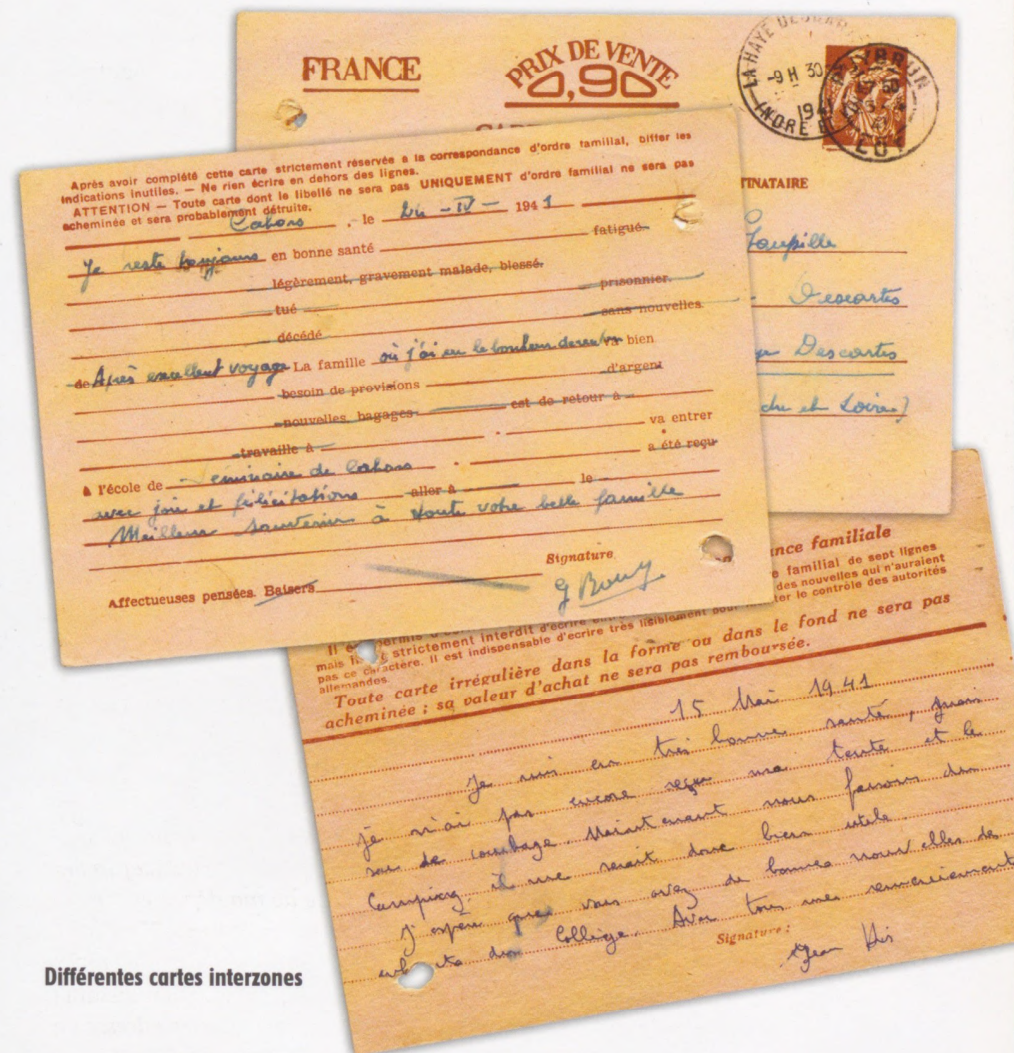 FRANCE
PRIX DE VENTE
0,90
LA HAYE DESCAR
-9 H 30
1941
INDRE E
LOT
TINATAIRE
Goupille
Descartes
Descartes
dre et Loire)
Après avoir complété cette carte strictement réservée a la correspondance d'ordre familial, biffer les
indications inutiles. — Ne rien écrire en dehors des lignes.
ATTENTION — Toute carte dont le libellé ne sera pas UNIQUEMENT d'ordre familial ne sera pas
acheminée et sera probablement détruite.
Cahors, le -IV- 1941
Je reste toujours en bonne santé fatigué.
légèrement, gravement malade, blessé.
tué prisonnier.
décédé sans nouvelles
de Après excellent voyage La famille où j'ai eu le bonheur de va bien
besoin de provisions d'argent
nouvelles, bagages est de retour à
travaille à . va entrer
à l'école de Séminaire de Cahors . a été reçu
avec joie et félicitations aller à le
Meilleur souvenir à toute votre belle famille
Signature
Affectueuses pensées. Baisers
G Bouy
ance familiale
familial de sept lignes
des nouvelles qui n'auraient
strictement interdit d'écrire
pas ce caractère. Il est indispensable d'écrire très lisiblement pour le contrôle des autorités
allemandes.
Toute carte irrégulière dans la forme ou dans le fond ne sera pas
acheminée ; sa valeur d'achat ne sera pas remboursée.
15 Mai 1941
Je suis en très bonne santé,
je n'ai pas encore reçu ma tente et le
sac de couchage. Maintenant nous faisons du
Camping il me serait donc bien utile.
J'espère que vous avez de bonnes nouvelles des
du Collège. Avec tous mes remerciements
Signature :
Jean
Différentes cartes interzones